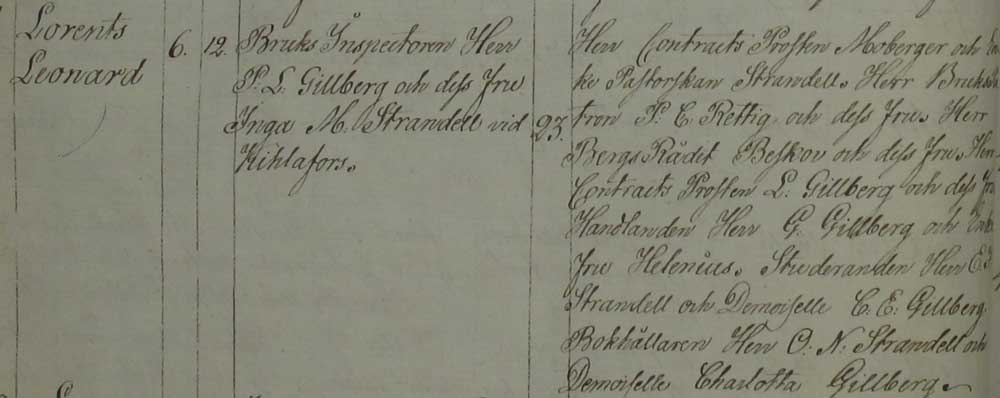 Lorents
Leonard
6. 12.
Bruks Inspectoren Herr
P. L. Gillberg och dess Fru
Inga M. Strandell vid
Kihlafors.
23.
Herr Contracts Prosten Moberger och
ke Pastorskan Strandell. Herr Bruks
tron P. C. Rettig och dess Fru. Herr
Bergs Rådet Beskov och dess Fru. Herr
Contracts Prosten L. Gillberg och dess Fru
Handlanden Herr G. Gillberg och Enke
Fru Helenius. Studeranden Herr E.
Strandell och Demoiselle C. E. Gillberg
Bokhållaren Herr O. N. Strandell och
Demoiselle Charlotta Gillberg.